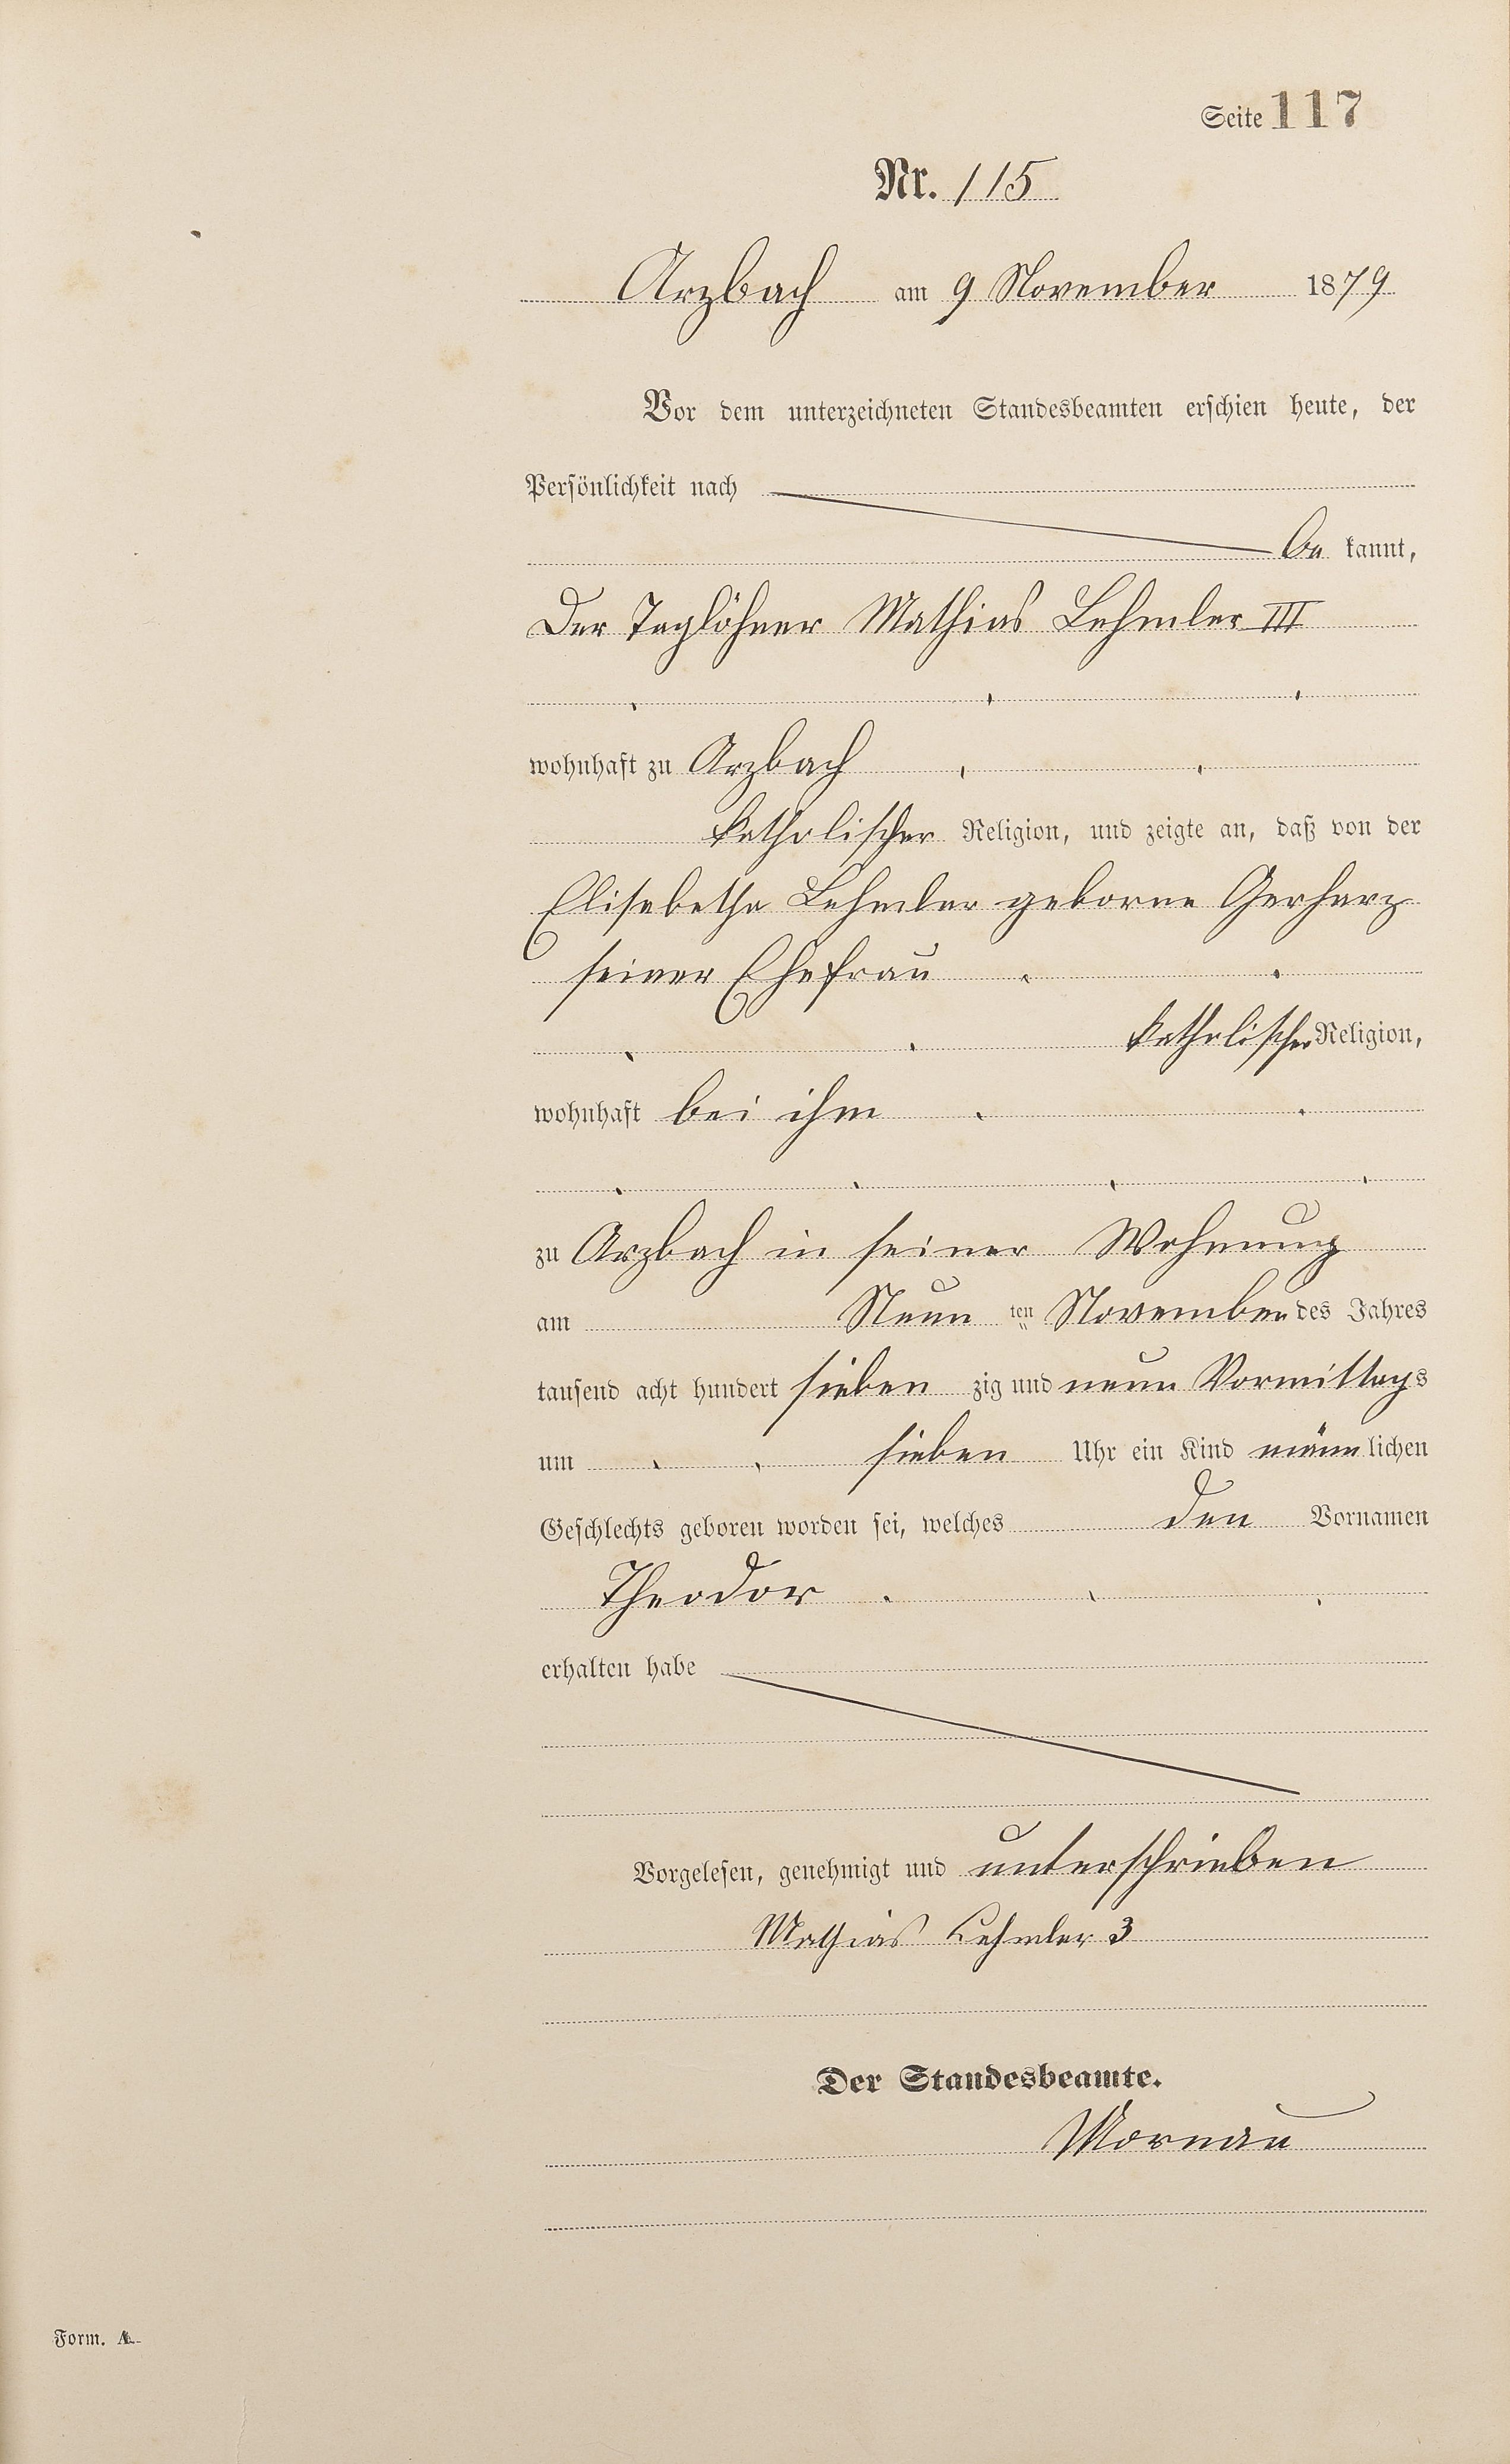 Seite 117
Nr. 115
Arzbach am 9 November 1879
Vor dem unterzeichneten Standesbeamten erschien heute, der
Persönlichkeit nach
be kannt,
Der Taglöhner Mathias Lehmler III
wohnhaft zu Arzbach
katholischer Religion, und zeigte an, daß von der
Elisabetha Lehmler geborne Gerharz
seiner Ehefrau
katholischer Religion,
wohnhaft bei ihm
zu Arzbach in seiner Wohnung
am Neun ten November des Jahres
tausend acht hundert sieben zig und neun Vormittags
um sieben Uhr ein Kind männlichen
Geschlechts geboren worden sei, welches den Vornamen
Theodor
erhalten habe
Vorgelesen, genehmigt und unterschrieben
Mathias Lehmler 3
Der Standesbeamte.
Mornau
Form. A.